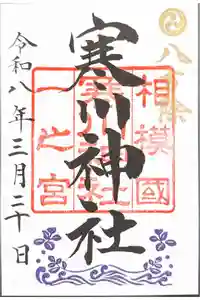 八方除
相模國
寒川神社
寒川神社
一之宮
令和八年三月二十日